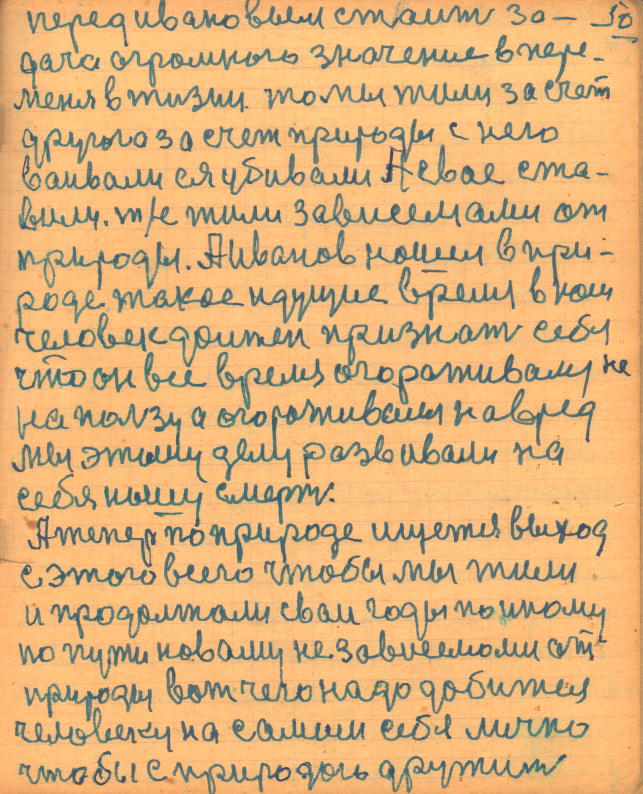 перед ивановым стаит за- 50
дача огромного значение в пере-
меня в жизни. то мы жили за счет
другого за счет природы с него
ваивали ся убивали А свае ста-
вили. т/е жили зависемами от
природы. А Иванов нашел в при-
роде такое идущие время в ком
человек должен признат себя
что он все время огораживалу не
на ползу а огораживалея на вред
мы этаму делу развивали на
себя нашу смерть.
А тепер по природе ищется выход
с этого всего чтобы мы жили
и продолжали сваи годы по иному
по пути новаму не зависемами от
природы вот чего надо добится
человеку на самим себя лично
чтобы с природою дружит